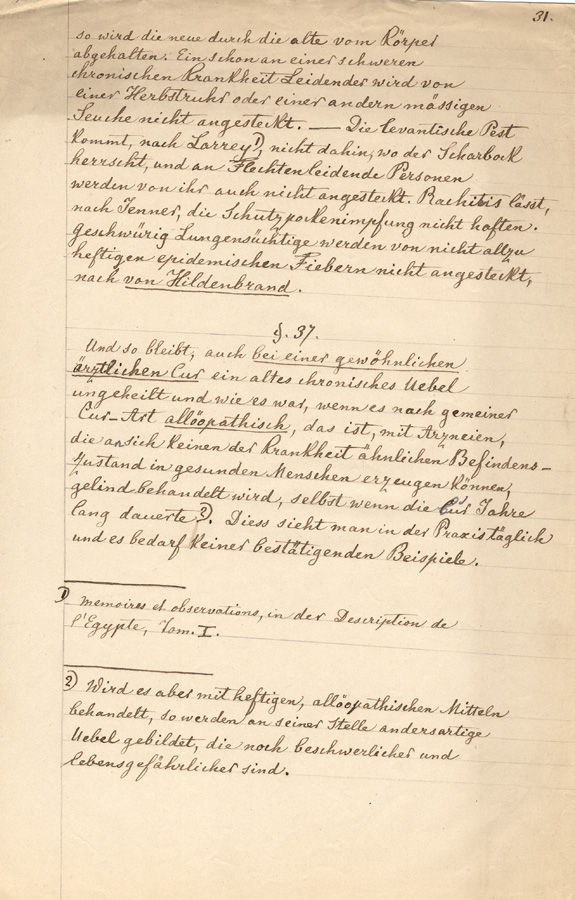 31.
so wird die neue durch die alte vom Körper
abgehalten. Ein schon an einer schweren
chronischen Krankheit Leidender wird von
einer Herbstruhr oder einer andern mässigen
Seuche nicht angesteckt. — Die levantische Pest
kommt, nach Larrey 1), nicht dahin, wo der Scharbock
herrscht, und an Flechten leidende Personen
werden von ihr auch nicht angesteckt. Rachitis lässt,
nach Jenner, die Schutzpockenimpfung nicht haften.
Geschwürig Lungensüchtige werden von nicht allzu
heftigen epidemischen Fiebern nicht angesteckt,
nach von Hildenbrand.
§. 37.
Und so bleibt, auch bei einer gewöhnlichen
ärztlichen Cur ein altes chronisches Uebel
ungeheilt und wie es war, wenn es nach gemeiner
Cur-Art allöopathisch, das ist, mit Arzneien,
die an sich keinen der Krankheit ähnlichen Befindens-
Zustand in gesunden Menschen erzeugen können,
gelind behandelt wird, selbst wenn die Cur Jahre
lang dauerte 2). Diess sieht man in der Praxis täglich
und es bedarf keiner bestätigenden Beispiele.
1) memoires et observations, in der Description de
l'Egypte, Tom. I.
2) Wird es aber mit heftigen, allöopathischen Mitteln
behandelt, so werden an seiner Stelle andersartige
Uebel gebildet, die noch beschwerlicher und
lebensgefährlicher sind.